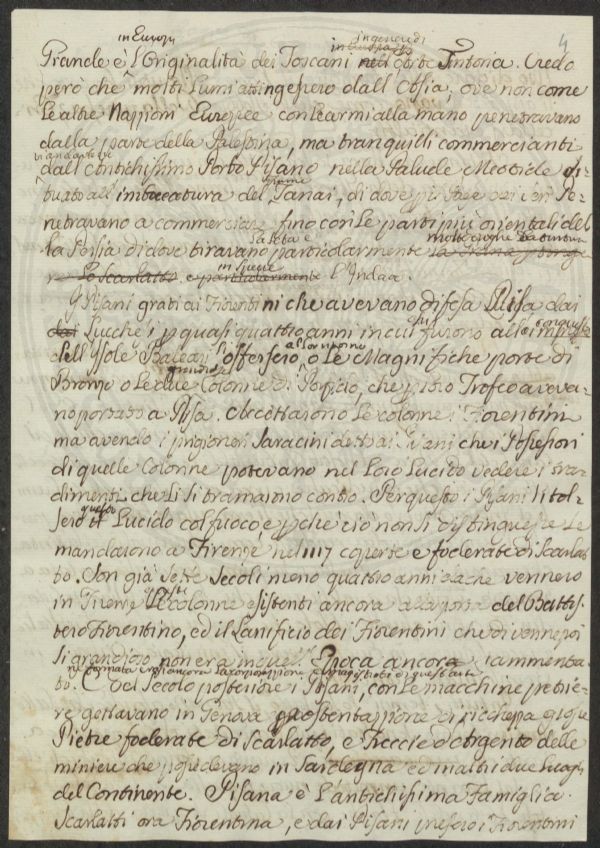 in Europa
in genere di
4
Grande è l'Originalità dei Toscani in Europa nell'arte Tintoria. Credo
però che molti Lumi attingessero dall'Assia, ove non come
le altre Nazioni Europee con le armi alla mano penetravano
dalla parte della Palestina, ma tranquilli commercianti
dall'antichissimo Porto Pisano nella Palude Meotide si-
tuato all'imboccatura del Tanai, di dove
netravano a commerciar fino con le parti più orientali del
la Persia di dove tiravano particolarmente
lo Scarlatto e particolarmente l'Indaa.
I Pisani grati ai Fiorentini che avevano difesa Pisa dai
dai Lucchesi p quasi quattro anni in cui furono all'
dell'Isole Baleari l'offersero o le Magnifiche porte di
Bronzo o le due Colonne di Porfido, che p loro Trofeo aveva-
no portato a Pisa. Accettarono le colonne i Fiorentini
ma avendo i prigioneri Saracini detto ai Pisani che i Possessori
di quelle Colonne potevano nel loro Lucido vedere i tra-
dimenti che li si tramavano contro. Per questo i Pisani li tol-
sero il Lucido col fuoco e pchè ciò non si distinguesse le
mandarono a Firenze nel 1117 coperte e foderate di Scarlat-
to. Son già sette Secoli meno quattro anni dache vennero
in Firenze le colonne esistenti ancora alla porta del Battis-
tero Fiorentino, ed il Lanificio dei Fiorentini che divenne poi
si grandioso non era in quell'Epoca ancora rammenta-
to. Nel Secolo posteriore i Pisani, con le macchine petrie-
re gettavano in Genova p ostentazione di ricchezza grosse
Pietre foderate di Scarlatto, e Freccie d'Argento delle
miniere che possedevano in Sardegna ed in altri due Luoghi
del Continente. Pisana è l'antichissima Famiglia
Scarlatti ora Fiorentina, e dai Pisani presero i Fiorentini